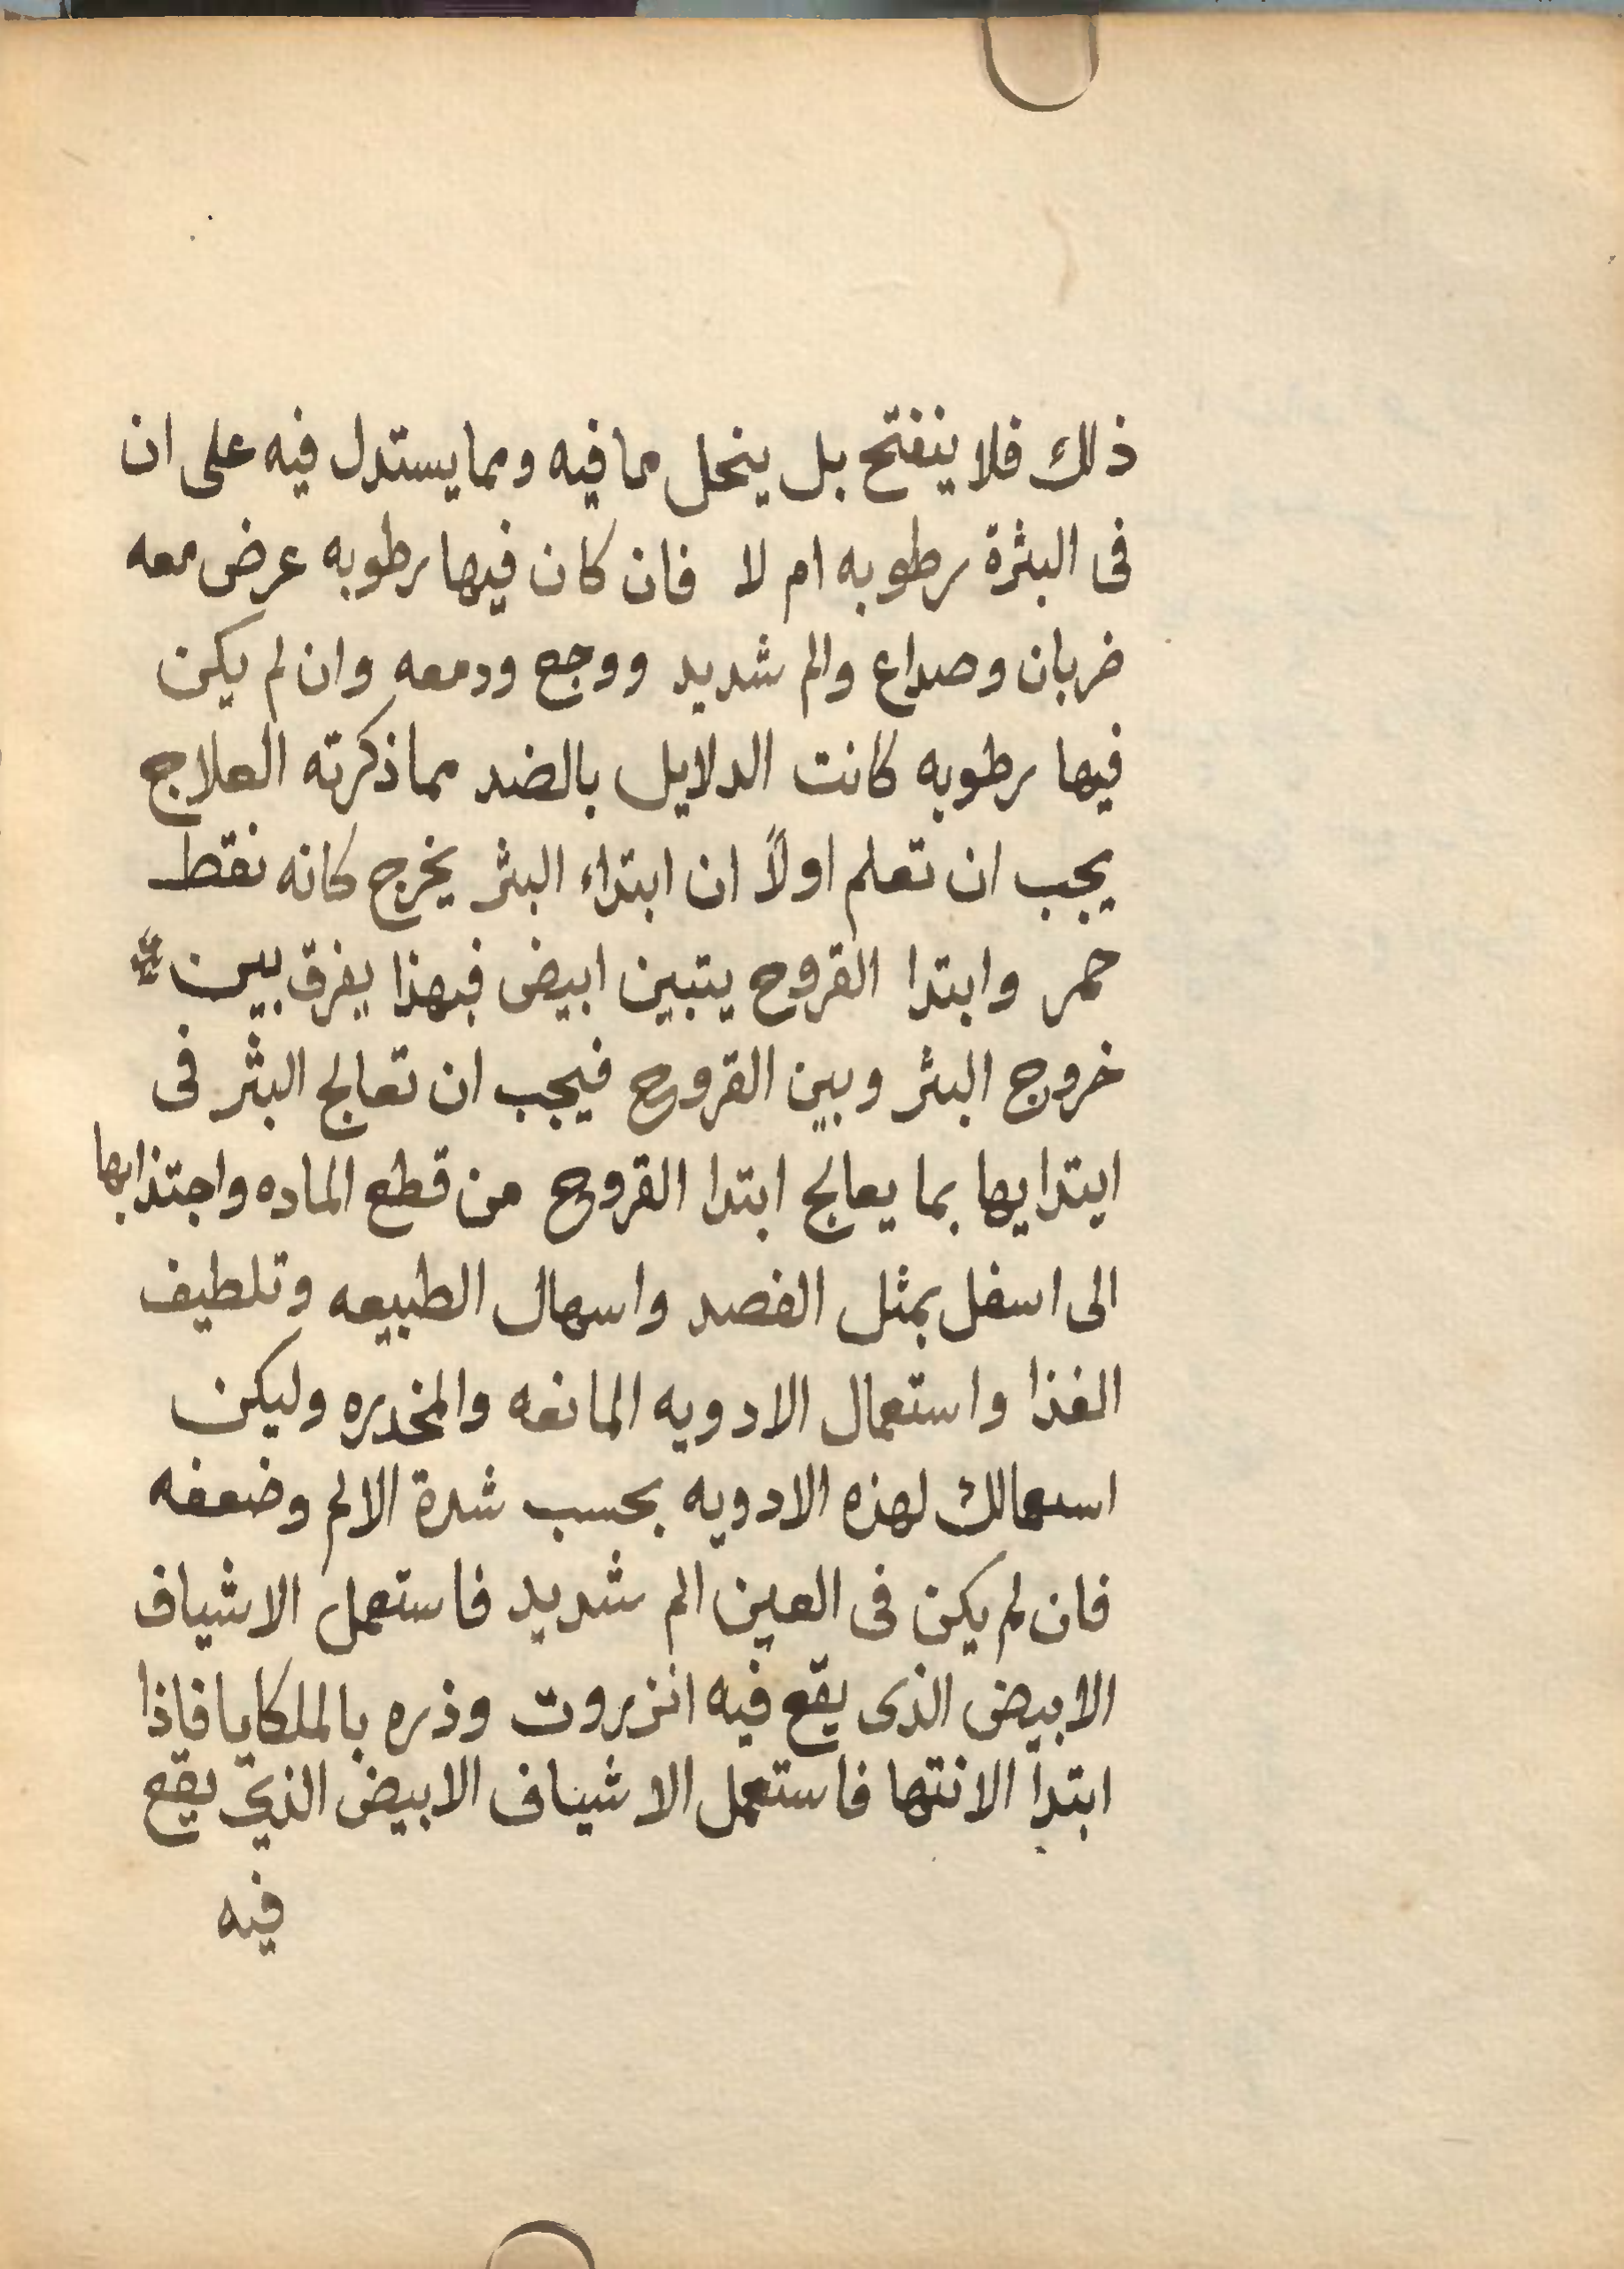 ذلك فلا ينفتح بل ينحل مافيه ومما يستدل فيه على ان
فى البثرة رطوبه ام لا فان كان فيها رطوبه عرض معه
ضربان وصداع والم شديد ووجع ودمعه وان لم يكن
فيها رطوبه كانت الدلايل بالضد مما ذكرته العلاج
يجب ان تعلم اولاً ان ابتداء البثر يخرج كانه نقط
حمر وابتدا القروح يتبين ابيض فبهذا يفرق بين
خروج البثر وبين القروح فيجب ان تعالج البثر فى
ابتدايها بما يعالج ابتدا القروح من قطع الماده واجتذابها
الى اسفل بمثل الفصد واسهال الطبيعه وتلطيف
الغذا واستعمال الادويه المانعه والمخدره وليكن
استعمالك لهذه الادويه بحسب شدة الالم وضعفه
فان لم يكن فى العين الم شديد فاستعمل الاشياف
الابيض الذى يقع فيه انزروت وذره بالملكايا فاذا
ابتدأ الانتها فاستعمل الاشياف الابيض الذي يقع
فيه